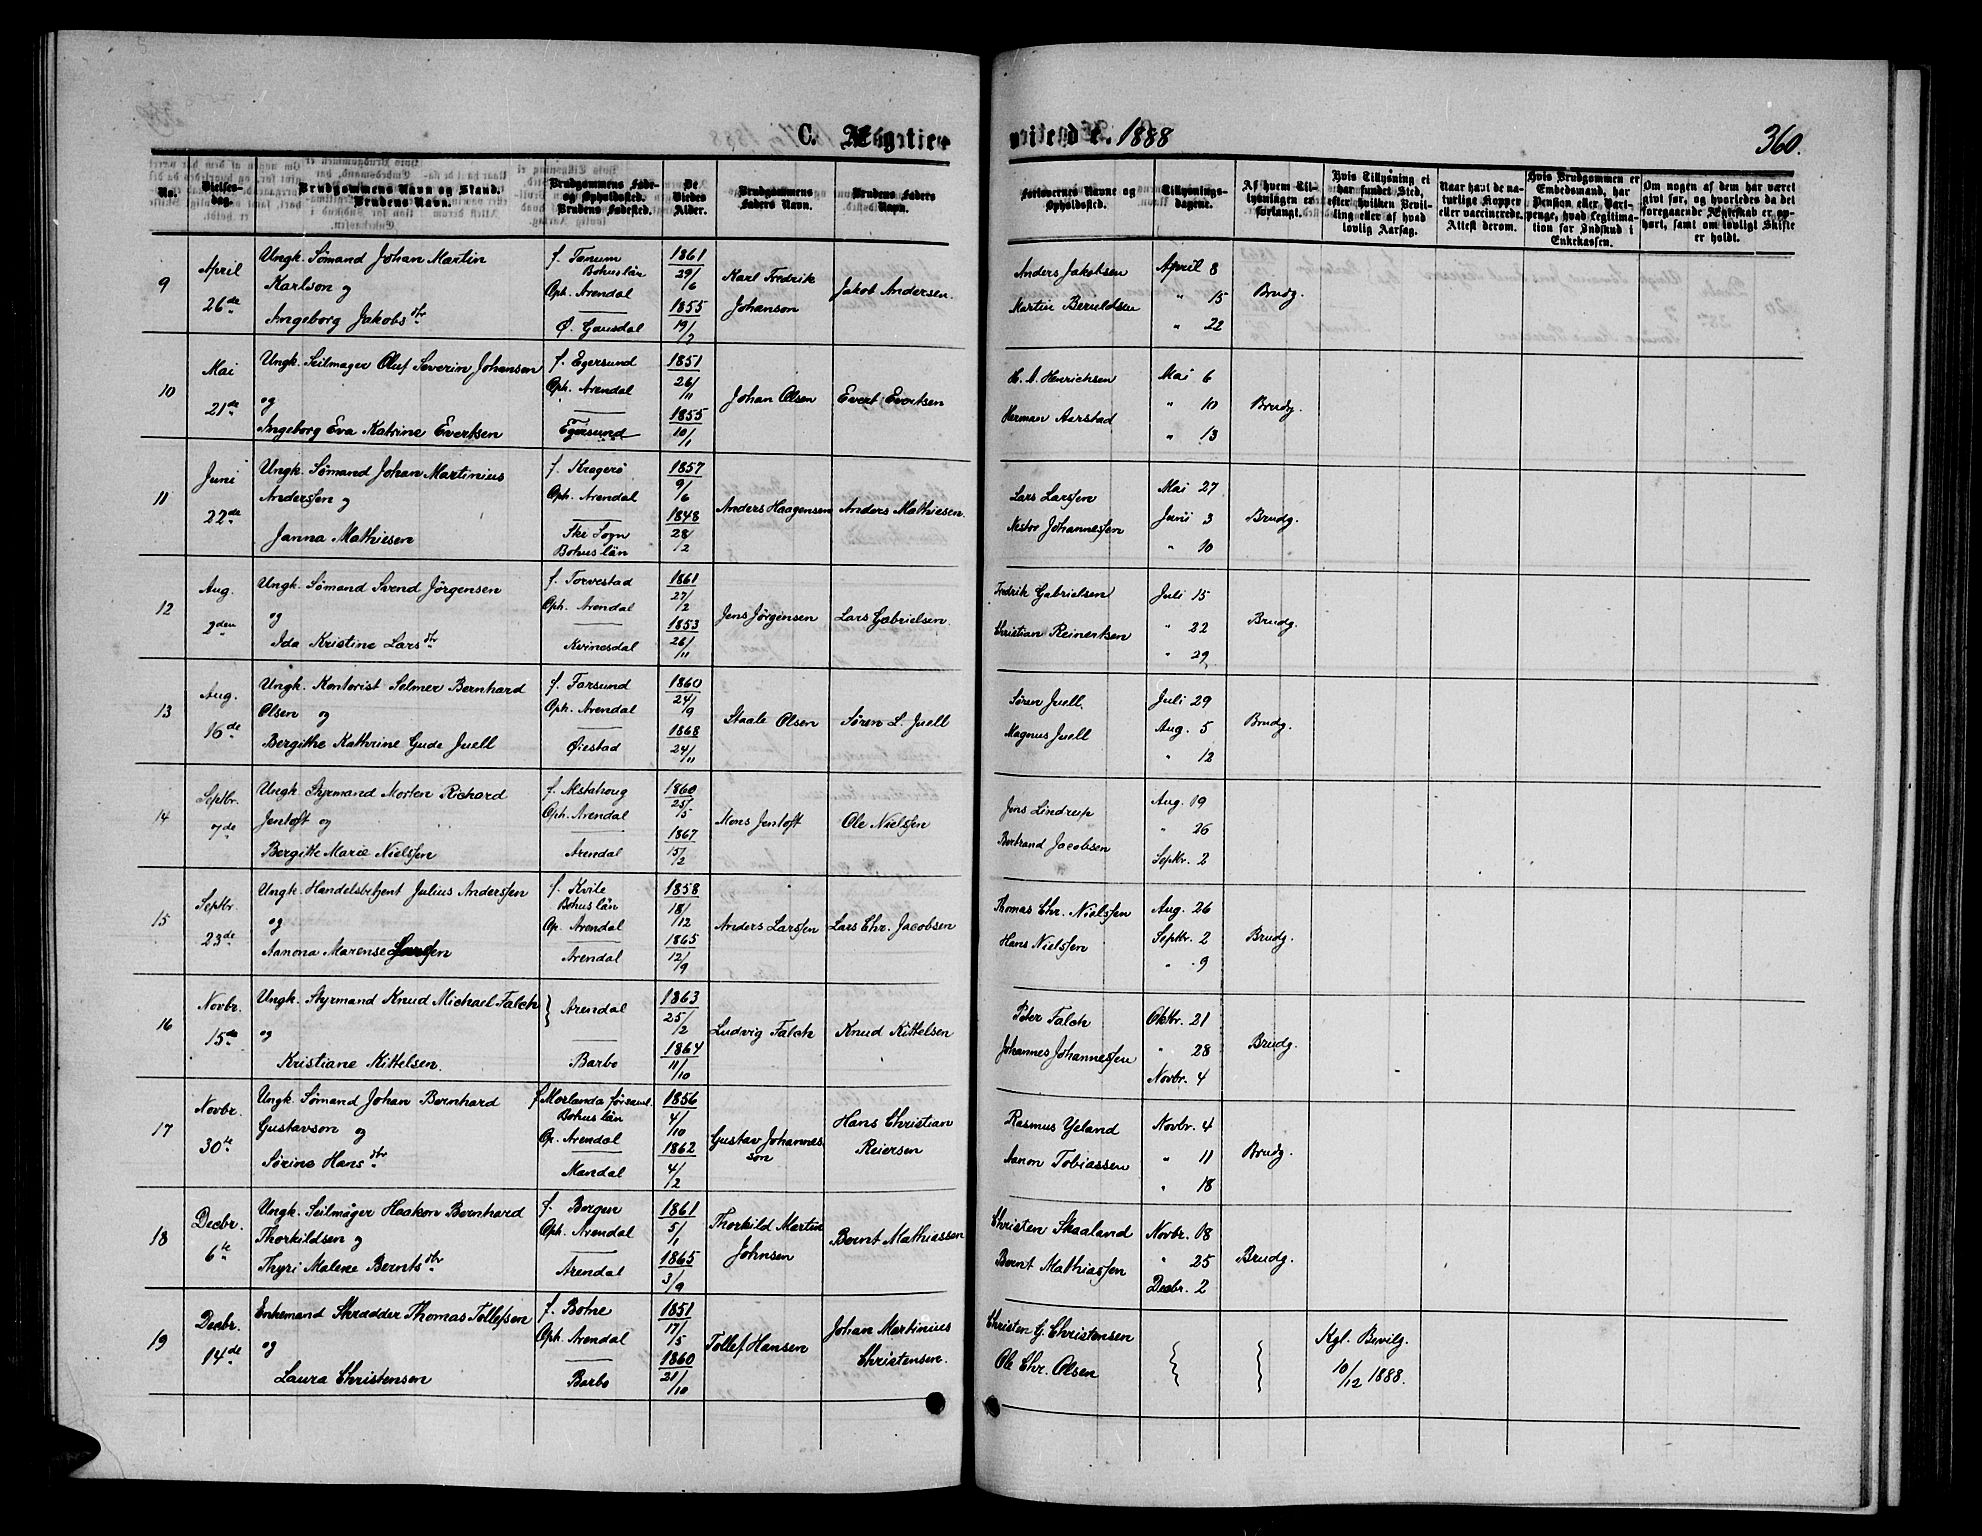 C. Ægtevi
ede. 1888
360.
No.
Vielses-
dag.
Brudgommens Navn og Stand.
Brudens Navn.
Brudgommens Føde-
og Opholdssted.
Brudens Fødested.
De
Viedes
Alder.
Brudgommens
Faders Navn.
Brudens Faders
Navn.
Forlovernes Navne og
Opholdssted.
Tillysnings-
dagene.
Af hvem Til-
lysningen er
forlangt.
Hvis Tillysning ei
har fundet Sted,
efter hvilken Bevil-
ling eller af hvad
lovlig Aarsag.
Naar havt de na-
turlige Kopper
eller vaccinerede.
Attest derom.
Hvis Brudgommen er
Embedsmand, har
Pension eller Vart-
penge, hvad Legitima-
tion for Indskud i
Enkekassen.
Om nogen af dem har været
givt før, og hvorledes da det
foregaaende Ægteskab er op-
hørt, samt om lovligt Skifte
er holdt.
9
April
26de
Ungk. Sømand Johan Martin
Karlson og
Ingeborg Jakobsdtr
f. Tanum
Bohuslän
Oph. Arendal
Ø. Gausdal
1861
29/6
1855
19/2
Karl Fredrik
Johanson
Jakob Andersen.
Anders Jakobsen
Martin Berntdtsen
April 8
" 15
" 22
Brudg.
10
Mai
21de
Ungk. Seilmager Oluf Severin Johansen
og
Ingeborg Eva Katrine Evertsen
f. Egersund
Oph. Arendal
Egersund
1851
26/11
1855
10/1
Johan Olsen
Evert Evertsen
H. A. Henrichsen
Herman Aarstad
Mai 6
" 10
" 13
Brudg.
11
Juni
22de
Ungk. Sømand Johan Martinius
Anderssen og
Janna Mathiesen
f. Kragerø
Oph. Arendal
Ske Sogn
Bohuslän
1857
9/6
1848
28/2
Anders Haagensen
Anders Mathiesen.
Lars Larssen
Nestor Johannessen
Mai 27
Juni 3
" 10
Brudg.
12
Aug.
2den
Ungk. Sømand Svend Jörgensen
og
Ida Kristine Larsdtr
f. Torvestad
Oph. Arendal
Kvinesdal
1861
27/2
1853
26/11
Jens Jörgensen
Lars Gabrielsen.
Fredrik Gabrielsen
Christian Reinertsen
Juli 15
" 22
" 29
Brudg.
13
Aug.
16de
Ungk. Kontorist Selmer Bernhard
Olsen og
Bergithe Kathrine Gude Juell
f. Farsund
Oph. Arendal
Øiestad
1860
24/9
1868
24/11
Staale Olsen
Søren L. Juell
Søren Juell
Magnus Juell
Juli 29
Aug. 5
" 12
Brudg.
14
Septbr.
7de
Ungk. Styrmand Morten Richard
Jentoft og
Bergitte Marie Nielssen
f. Alstahoug
Oph. Arendal
Arendal
1860
25/5
1867
15/2
Mons Jentoft
Ole Nielssen
Jens Lindrup
Bertrand Jacobsen
Aug. 19
" 26
Septbr. 2
15
Septbr.
23de
Ungk. Handelsbetjent Julius Anderssen
og
Aanona Marense Larssen
f. Kvile
Bohuslän
Op. Arendal
Arendal
1858
18/12
1865
12/9
Anders Larssen
Lars Chr. Jacobsen
Thomas Chr. Nielssen
Hans Nielssen
Aug. 26
Septbr. 2
" 9
Brudg.
16
Novbr.
15de
Ungk. Styrmand Knud Michael Falch
og
Kristiane Kittelsen.
} Arendal
Barbo
1863
25/2
1864
11/10
Ludvig Falch
Knud Kittelsen
Peter Falch
Johannes Johannessen
Oktbr. 21
" 28
Novbr. 4
Brudg.
17
Novbr.
30te
Ungk. Sømand Johan Bernhard
Gustavson og
Sørine Hansdtr
f Morlanda församl.
Bohuslän
Op. Arendal
Mandal
1856
4/10
1862
4/2
Gustav Johannes
son
Hans Christian
Reiersen
Rasmus Yeland
Aanon Tobiassen
Novbr. 4
" 11
" 18
Brudg.
18
Decbr.
6te
Ungk. Seilmager Haakon Bernhard
Thorkildsen og
Thyri Malene Berntsdtr
f. Bergen
Oph. Arendal
Arendal
1861
5/1
1865
3/9
Thorkild Martin
Johnsen
Bernt Mathiassen
Christen Skaaland
Bernt Mathiassen
Novbr. 18
" 25
Decbr. 2
Brudg.
19
Decbr.
14de
Enkemand Skrædder Thomas Tollefsen
og
Laura Christensen
f. Botne
Oph. Arendal
Barbo
1851
17/5
1860
21/10
Tollef Hansen
Johan Martinius
Christensen.
Christen G. Christensen
Ole Chr. Olsen
Kgl. Bevilg.
10/12 1888.